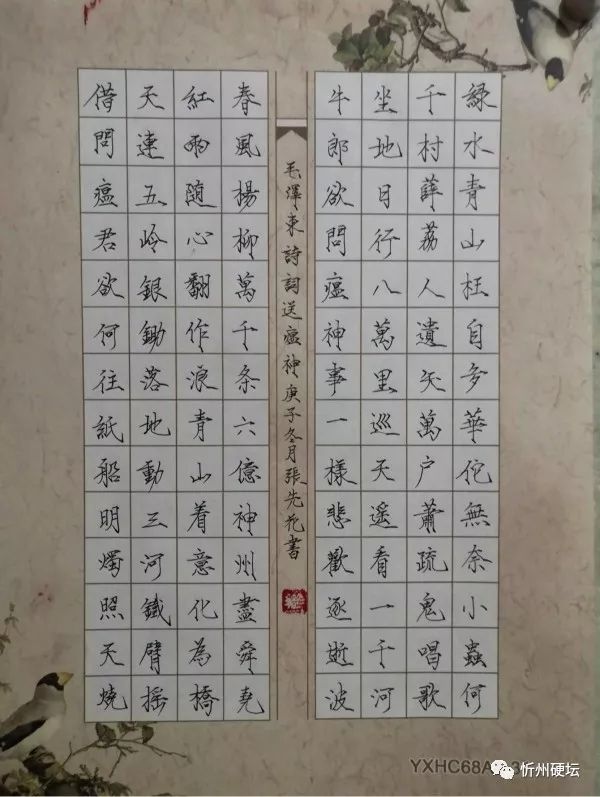 綠水青山枉自多華佗無奈小蟲何
千村薜荔人遺矢萬户蕭疏鬼唱歌
坐地日行八萬里巡天遥看一千河
牛郎欲問瘟神事一樣悲歡逐逝波
毛澤東詩詞送瘟神庚子冬月張先花書
春風楊柳萬千条六億神州盡舜堯
紅雨隨心翻作浪青山着意化為橋
天連五岭銀鋤落地動三河鐵臂摇
借問瘟君欲何往紙船明燭照天燒
YXHC68A
忻州硬坛